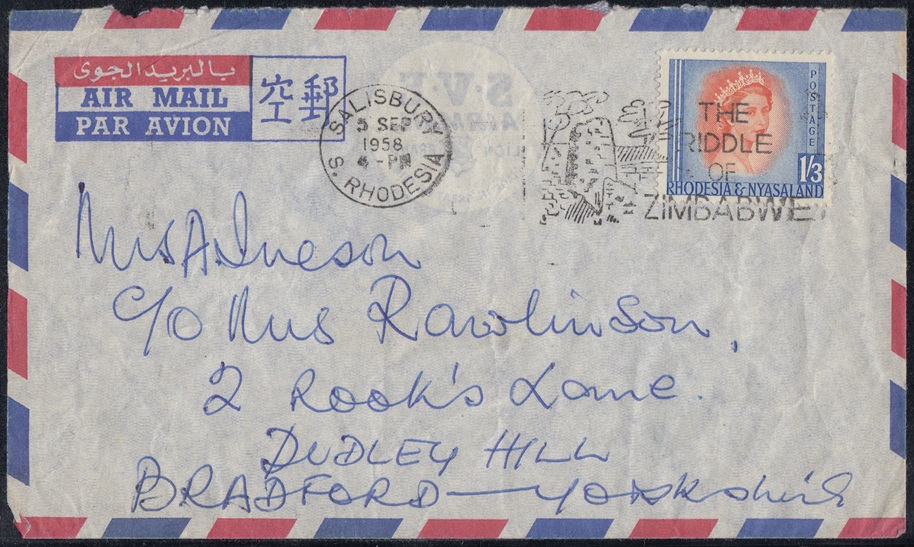 بالبريد الجوى
AIR MAIL
PAR AVION
空郵
SALISBURY
5 SEP
1958
4-PM
S. RHODESIA
THE
RIDDLE
OF
ZIMBABWE
POSTAGE
1/3
RHODESIA & NYASALAND
Mrs A. Ineson
C/O Mrs Rawlinson,
2 Rook's Lane.
DUDLEY HILL
BRADFORD — Yorkshire